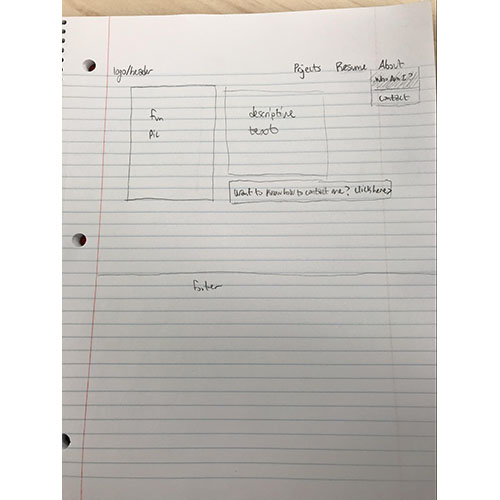 logo/header
Pojects Resume About
Who Am I?
Contact
fun
pic
descriptive
text
Want to know how to contact me? Click here>
footer